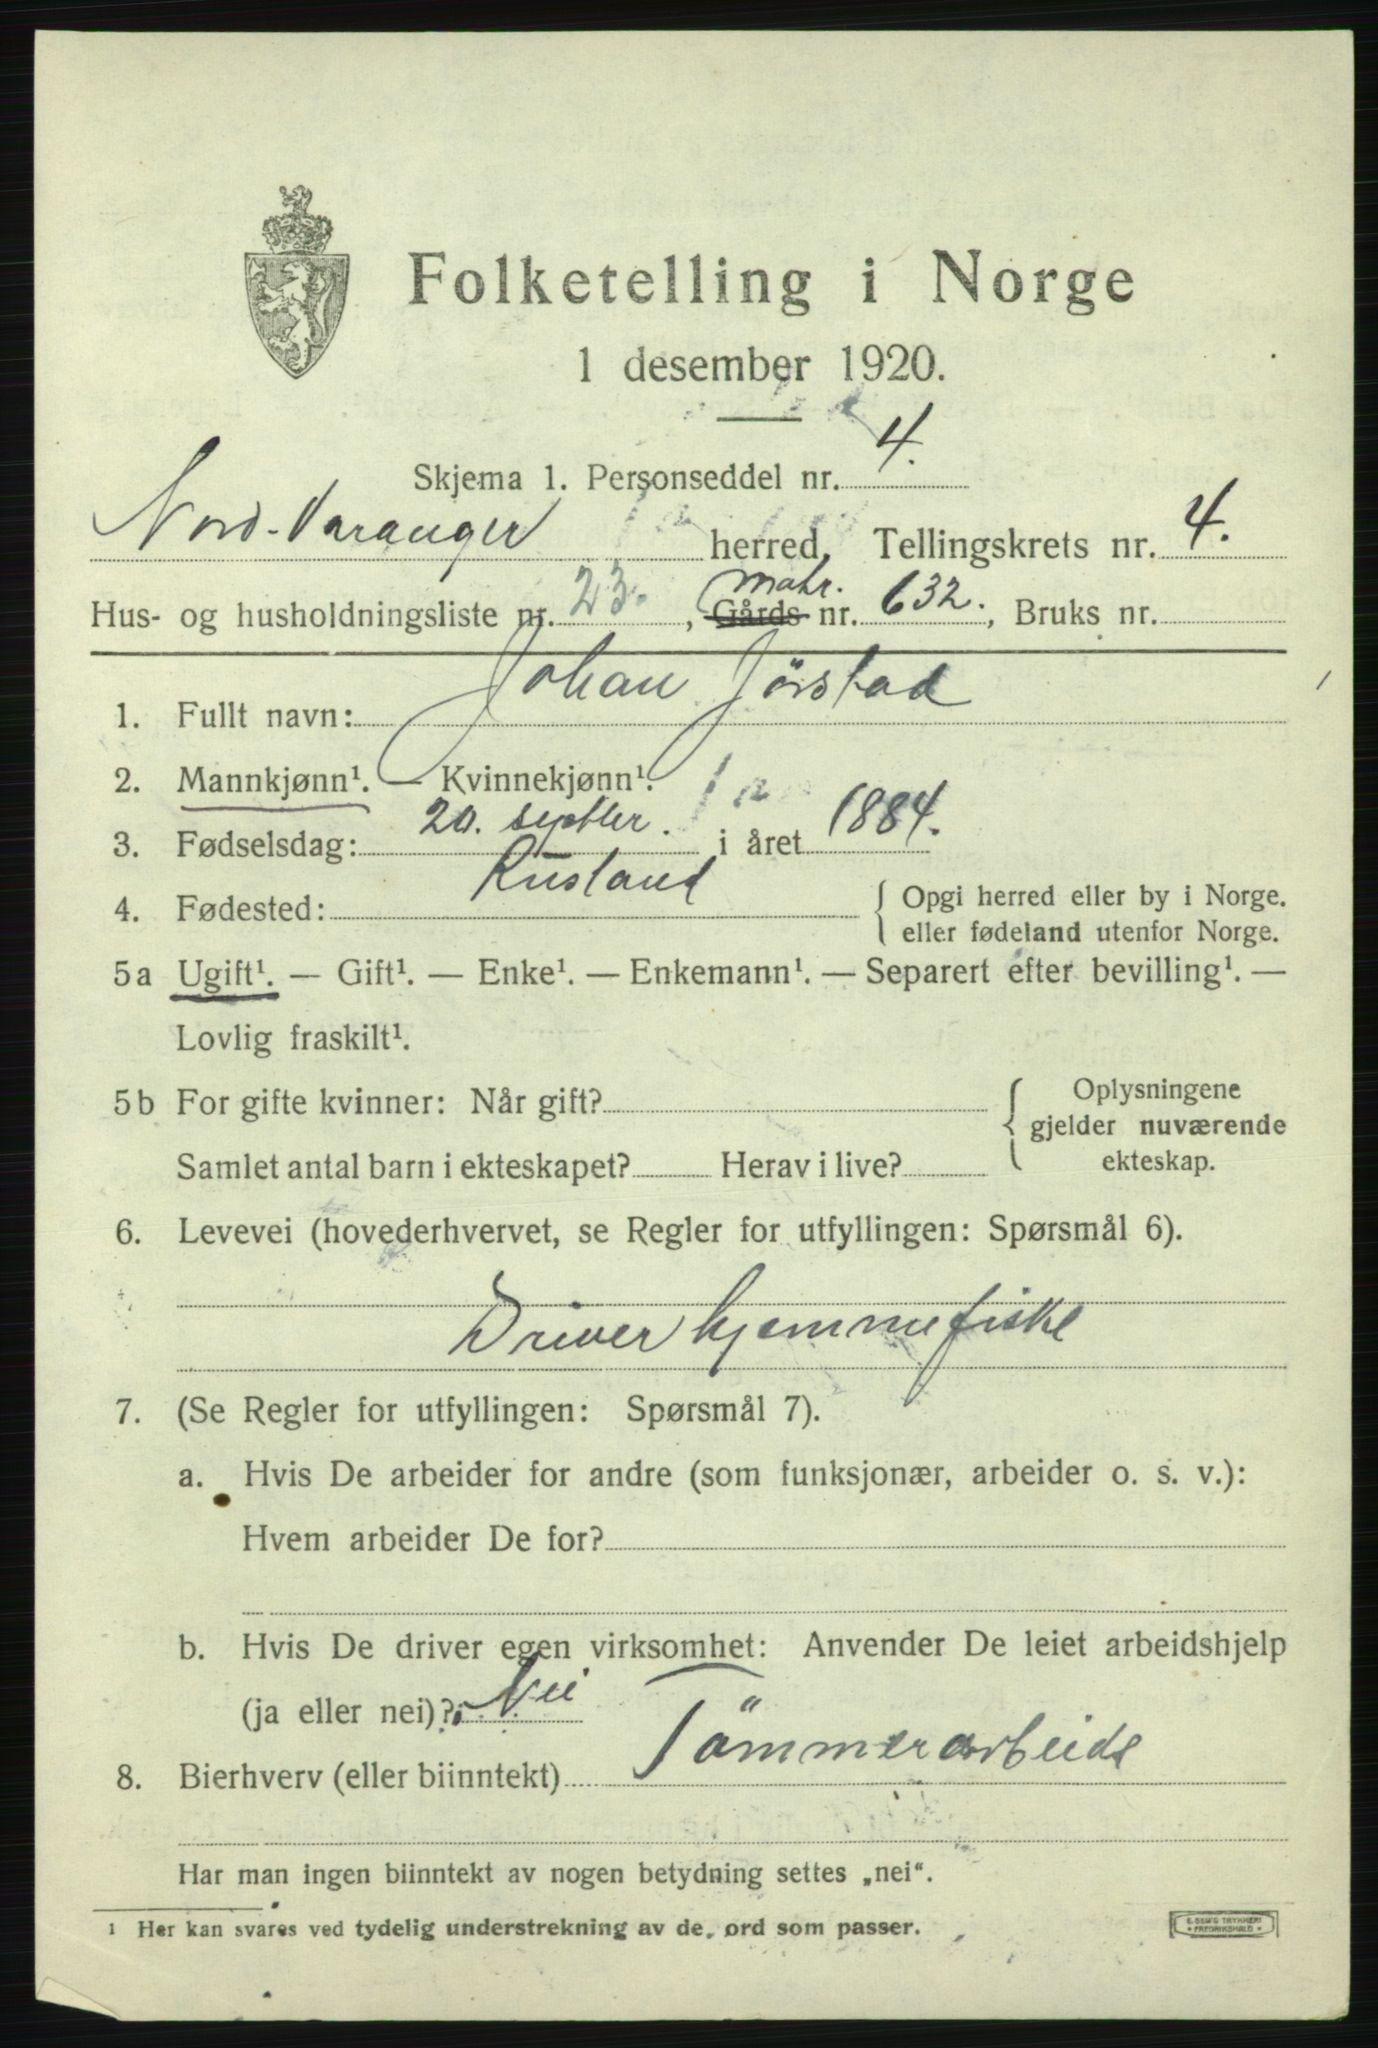 Folketelling i Norge
1 desember 1920.
Skjema 1. Personseddel nr. 4.
Nord-Varanger herred. Tellingskrets nr. 4.
Hus- og husholdningsliste nr. 23., Gårds Matr. nr. 632., Bruks nr.
1. Fullt navn: Johan Jörstad
2. Mannkjønn¹. — Kvinnekjønn¹.
3. Fødselsdag: 20. septber. i året 1884.
4. Fødested: Rusland { Opgi herred eller by i Norge.
eller fødeland utenfor Norge.
5a Ugift¹. — Gift¹. — Enke¹. — Enkemann¹. — Separert efter bevilling¹. —
Lovlig fraskilt¹.
5b For gifte kvinner: Når gift? { Oplysningene
gjelder nuværende
Samlet antal barn i ekteskapet? Herav i live? ekteskap.
6. Levevei (hovederhvervet, se Regler for utfyllingen: Spørsmål 6).
Driver hjemmefiske
7. (Se Regler for utfyllingen: Spørsmål 7).
a. Hvis De arbeider for andre (som funksjonær, arbeider o. s. v.):
Hvem arbeider De for?
b. Hvis De driver egen virksomhet: Anvender De leiet arbeidshjelp
(ja eller nei)? Nei
8. Bierhverv (eller biinntekt) Tömmerarbeide
Har man ingen biinntekt av nogen betydning settes „nei“.
¹ Her kan svares ved tydelig understrekning av de ord som passer.
E. SEM'S TRYKKERI
FREDRIKSHALD